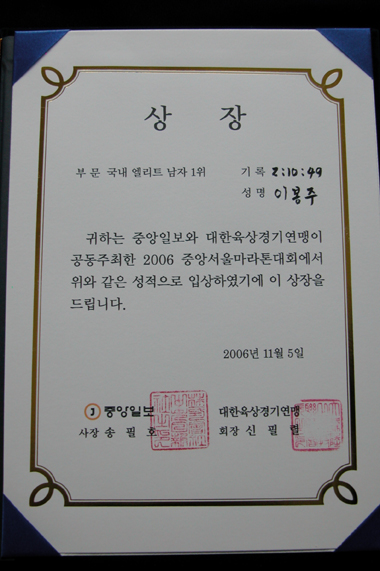 상 장
부 문 국내 엘리트 남자 1위 기 록 2:10:49
성 명 이봉주
귀하는 중앙일보와 대한육상경기연맹이
공동주최한 2006 중앙서울마라톤대회에서
위와 같은 성적으로 입상하였기에 이 상장을
드립니다.
2006년 11월 5일
J 중앙일보 대한육상경기연맹
사장 송 필 호 회장 신 필 렬